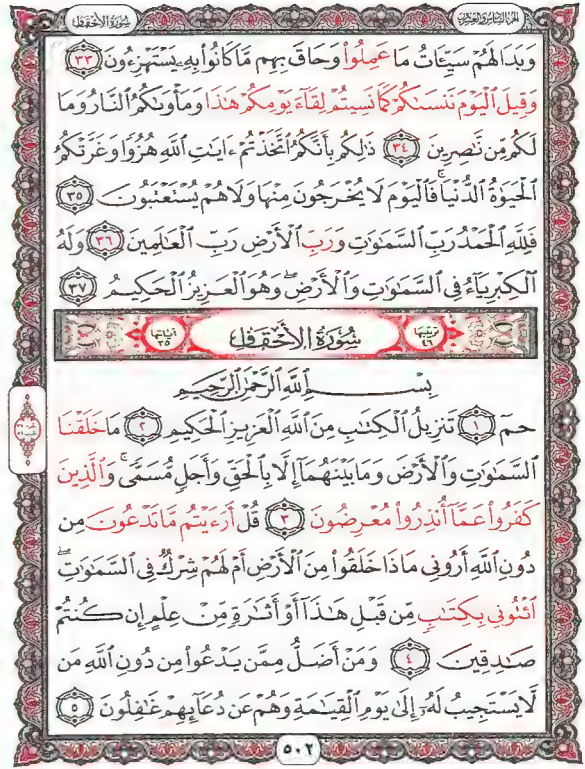 سُورَةُ الأَحْقَافِ
الجُزْءُ السَّادِسُ وَالعِشْرُونَ
وَبَدَا لَهُمْ سَيِّـَٔاتُ مَا عَمِلُوا۟ وَحَاقَ بِهِم مَّا كَانُوا۟ بِهِۦ يَسْتَهْزِءُونَ ٣٣
وَقِيلَ ٱلْيَوْمَ نَنسَىٰكُمْ كَمَا نَسِيتُمْ لِقَآءَ يَوْمِكُمْ هَٰذَا وَمَأْوَىٰكُمُ ٱلنَّارُ وَمَا
لَكُم مِّن نَّٰصِرِينَ ٣٤ ذَٰلِكُم بِأَنَّكُمُ ٱتَّخَذْتُمْ ءَايَٰتِ ٱللَّهِ هُزُوًا وَغَرَّتْكُمُ
ٱلْحَيَوٰةُ ٱلدُّنْيَا ۚ فَٱلْيَوْمَ لَا يُخْرَجُونَ مِنْهَا وَلَا هُمْ يُسْتَعْتَبُونَ ٣٥
فَلِلَّهِ ٱلْحَمْدُ رَبِّ ٱلسَّمَٰوَٰتِ وَرَبِّ ٱلْأَرْضِ رَبِّ ٱلْعَٰلَمِينَ ٣٦ وَلَهُ
ٱلْكِبْرِيَآءُ فِى ٱلسَّمَٰوَٰتِ وَٱلْأَرْضِ ۖ وَهُوَ ٱلْعَزِيزُ ٱلْحَكِيمُ ٣٧
ترتيبها ٤٦ سُورَةُ الأَحْقَافِ آياتها ٣٥
بِسْمِ ٱللَّهِ ٱلرَّحْمَٰنِ ٱلرَّحِيمِ
حمٓ ١ تَنزِيلُ ٱلْكِتَٰبِ مِنَ ٱللَّهِ ٱلْعَزِيزِ ٱلْحَكِيمِ ٢ مَا خَلَقْنَا
ٱلسَّمَٰوَٰتِ وَٱلْأَرْضَ وَمَا بَيْنَهُمَآ إِلَّا بِٱلْحَقِّ وَأَجَلٍ مُّسَمًّى ۚ وَٱلَّذِينَ
كَفَرُوا۟ عَمَّآ أُنذِرُوا۟ مُعْرِضُونَ ٣ قُلْ أَرَءَيْتُم مَّا تَدْعُونَ مِن
دُونِ ٱللَّهِ أَرُونِى مَاذَا خَلَقُوا۟ مِنَ ٱلْأَرْضِ أَمْ لَهُمْ شِرْكٌ فِى ٱلسَّمَٰوَٰتِ ۖ
ٱئْتُونِى بِكِتَٰبٍ مِّن قَبْلِ هَٰذَآ أَوْ أَثَٰرَةٍ مِّنْ عِلْمٍ إِن كُنتُمْ
صَٰدِقِينَ ٤ وَمَنْ أَضَلُّ مِمَّن يَدْعُوا۟ مِن دُونِ ٱللَّهِ مَن
لَّا يَسْتَجِيبُ لَهُۥٓ إِلَىٰ يَوْمِ ٱلْقِيَٰمَةِ وَهُمْ عَن دُعَآئِهِمْ غَٰفِلُونَ ٥
٥٠٢